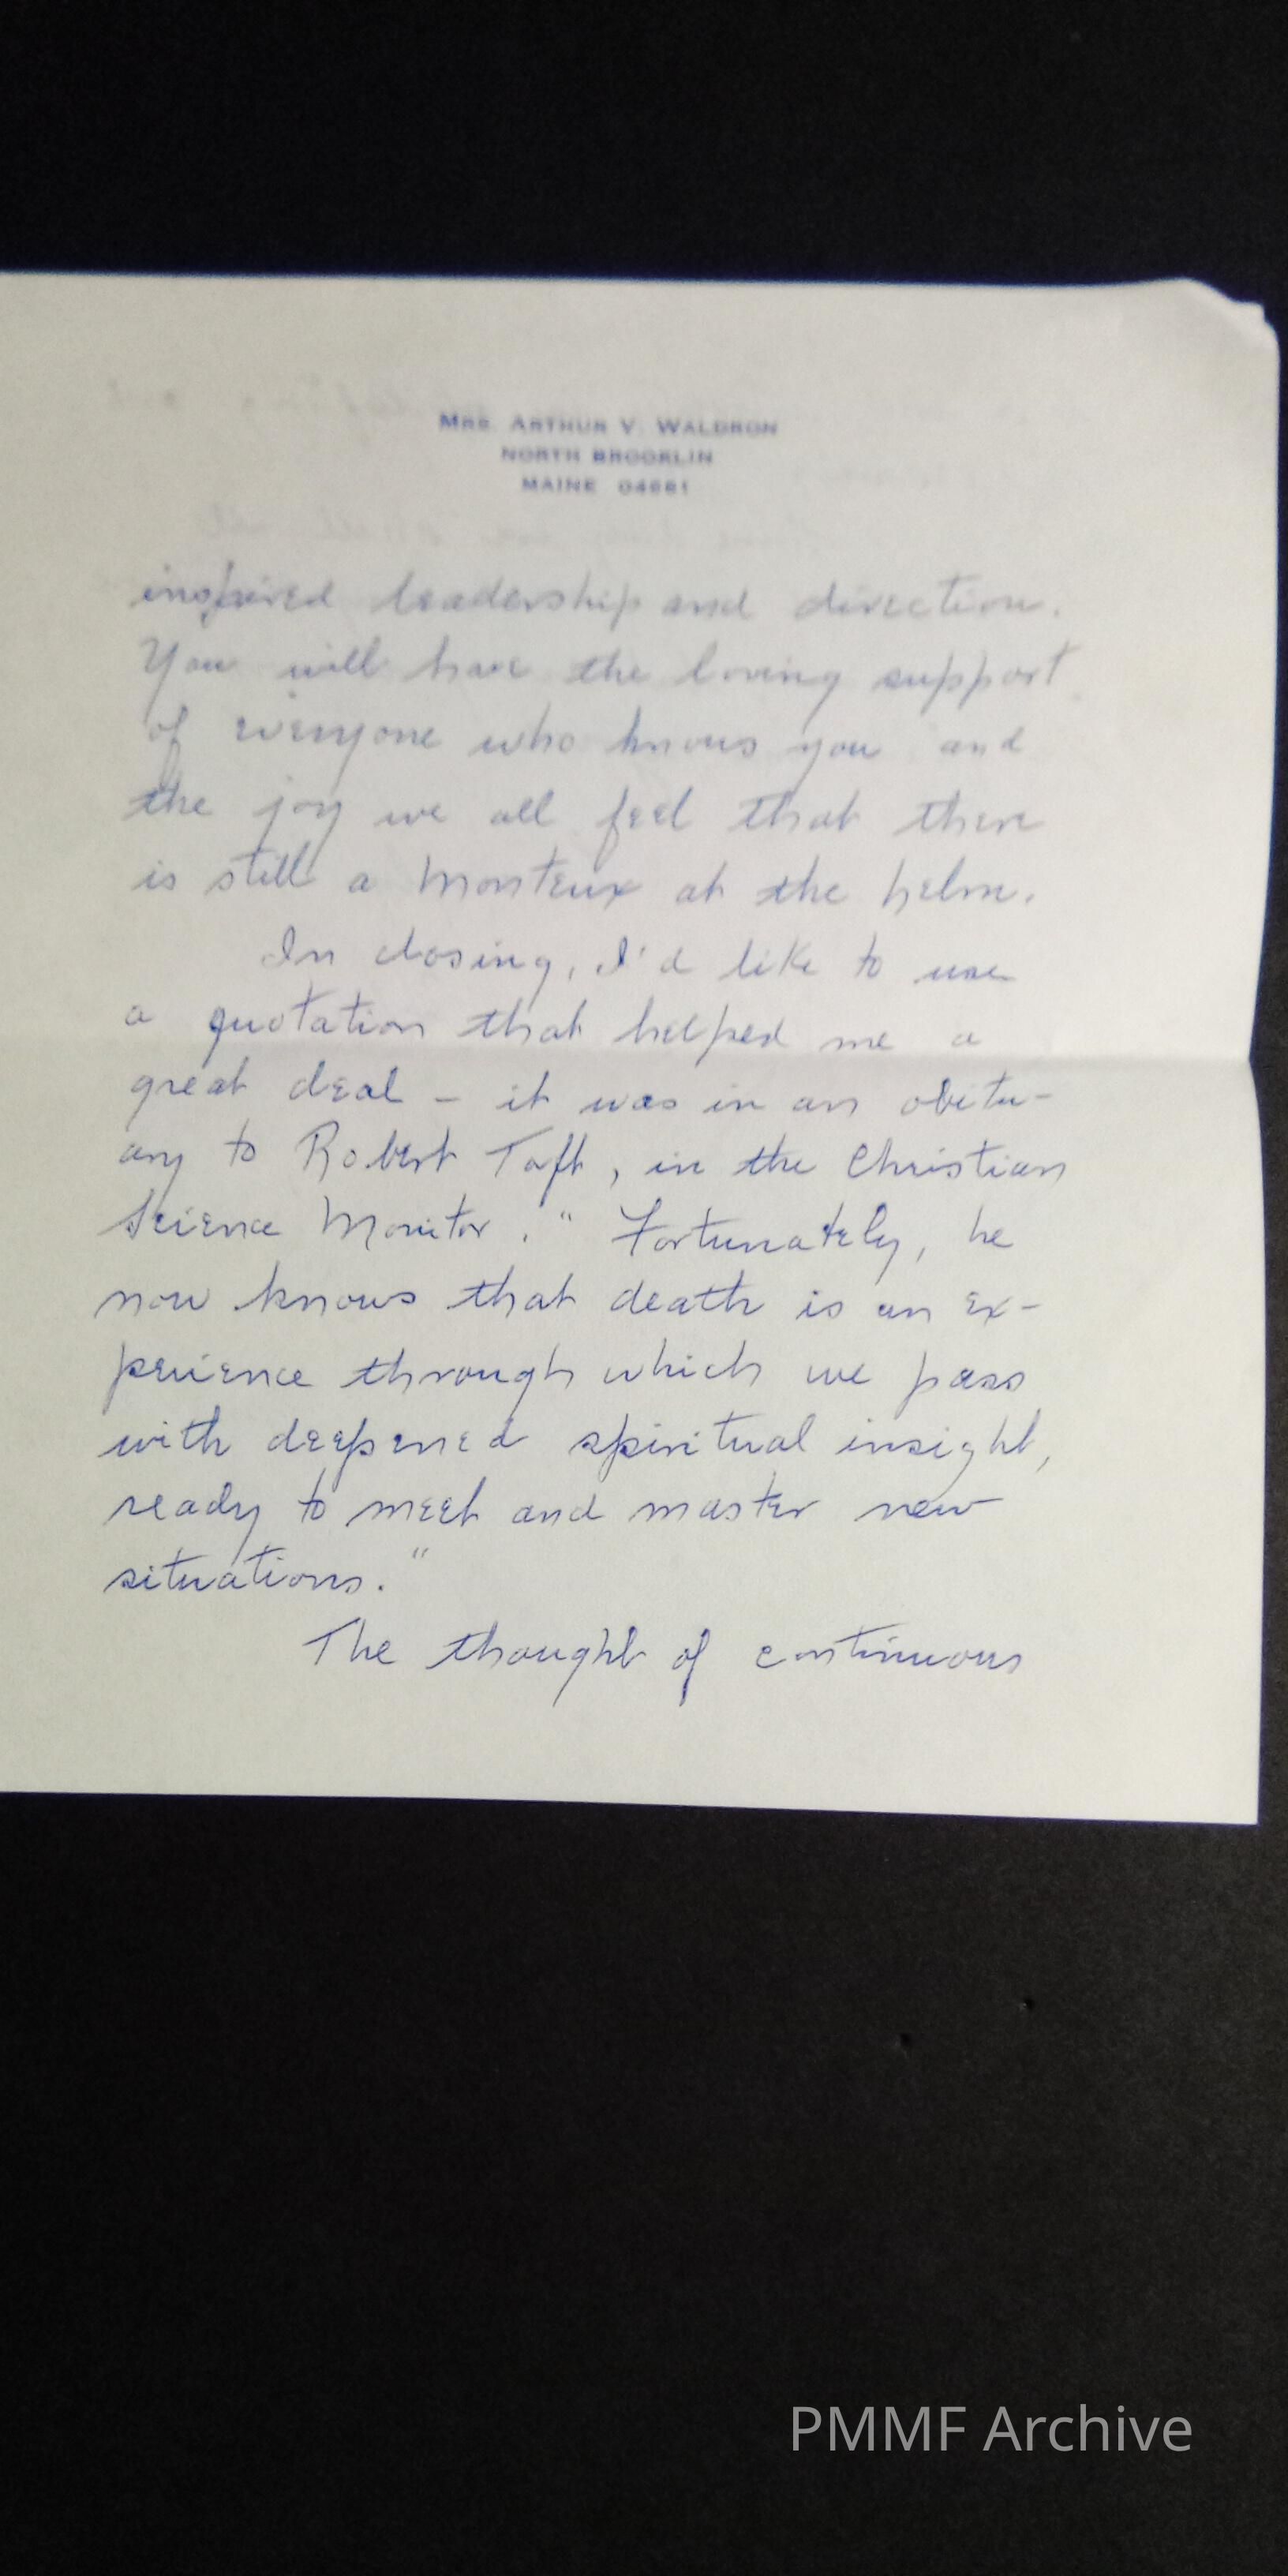 MRS. ARTHUR V. WALDRON
NORTH BROOKLIN
MAINE 04661
inspired leadership and direction.
You will have the loving support
of everyone who knows you and
the joy we all feel that there
is still a Monteux at the helm.
In closing, I'd like to use
a quotation that helped me a
great deal – it was in an obitu-
ary to Robert Taft, in the Christian
Science Monitor. " Fortunately, he
now knows that death is an ex-
perience through which we pass
with deepened spiritual insight,
ready to meet and master new
situations."
The thought of continuous
PMMF Archive